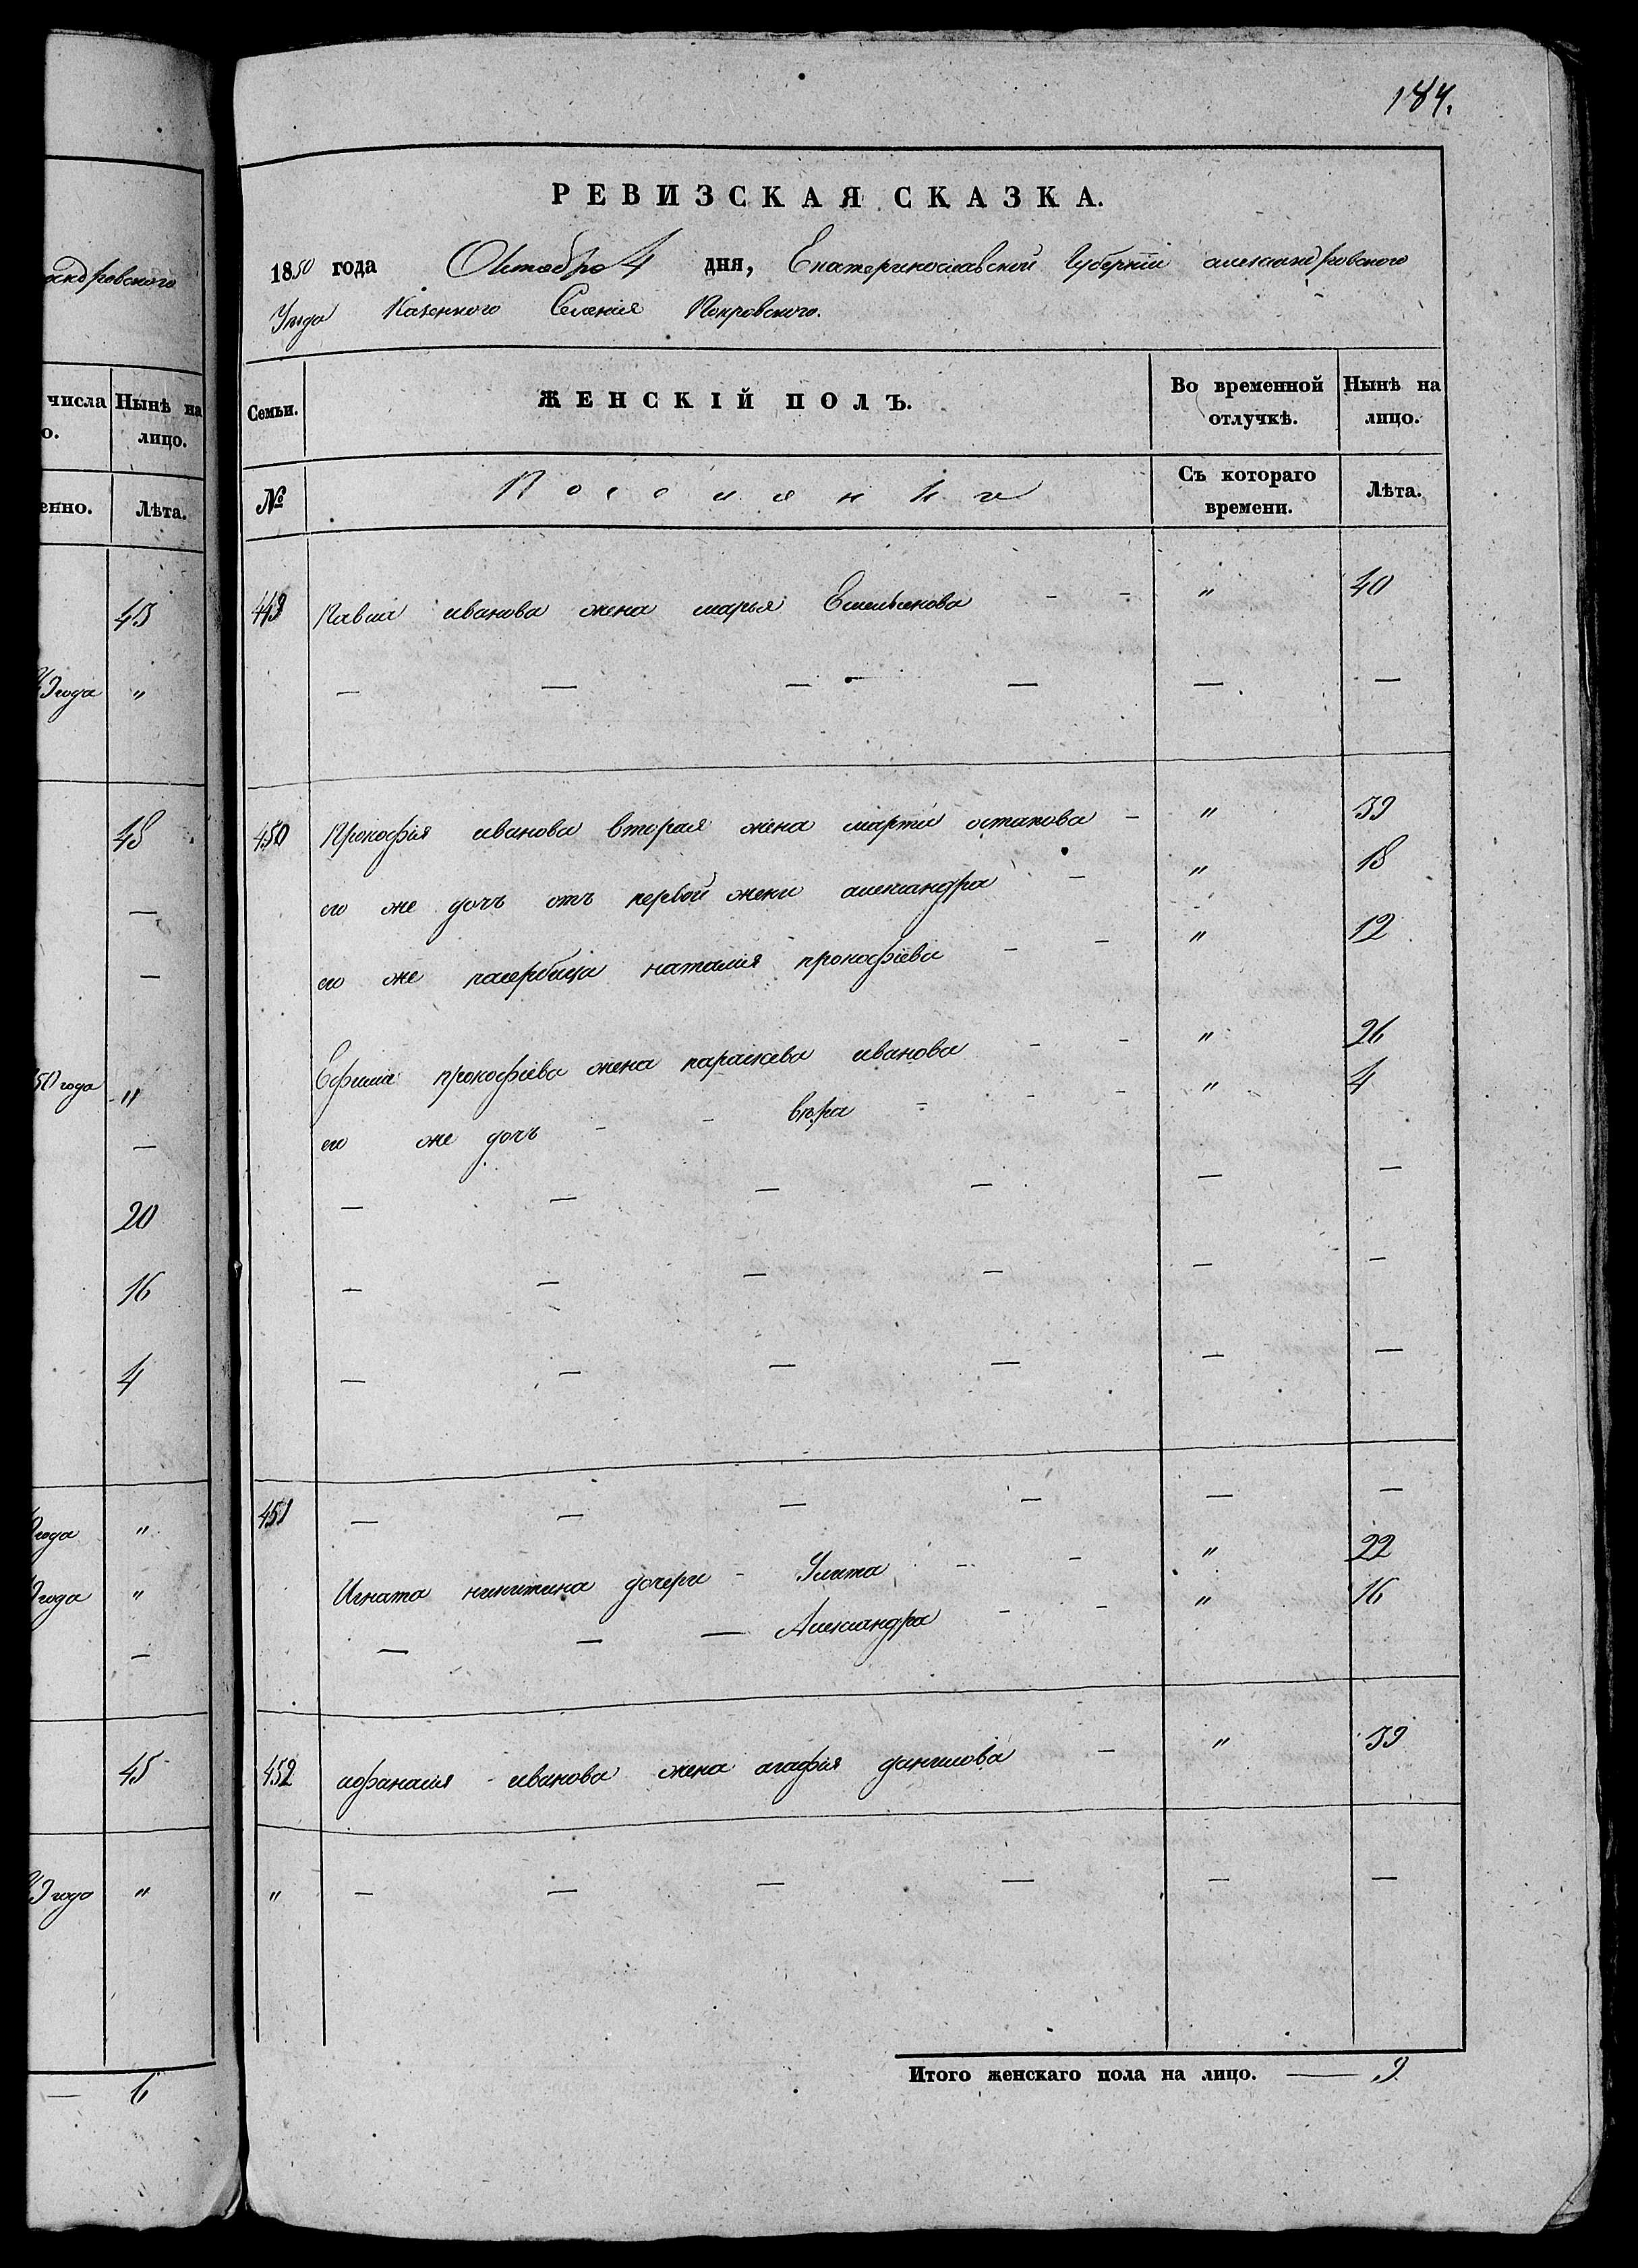 184.
РЕВИЗСКАЯ СКАЗКА.
1850 года Октября 4 дня, Екатеринославской Губернiи александровского
Уезда Казенного Селенiя Покровского.
андровского
числа Нынѣ на
о. лицо.
енно. Лѣта.
Семьи. ЖЕНСКIЙ ПОЛЪ. Во временной отлучкѣ. Нынѣ на лицо.
№ Поселянки Съ котораго времени. Лѣта.
449 Павла иванова жена марья Емельянова - - " 40
— — — — — —
450 Прокофiя иванова вторая жена марта остапова - " 39
его же дочь отъ первой жены александра - " 18
его же пасербица наталiя прокофiева - - " 12
Ефима прокофiева жена параскева иванова - - " 26
его же дочь - - вѣра - - - " 4
— — — — — —
— — — — — —
— — — — — —
451 — — — — — —
Игната никитина дочери - Улита - - " 22
— — — Александра - - " 16
452 афанасiя иванова жена агафiя данилова - " 39
" — — — — — —
Итого женскаго пола на лицо. — 9
45
года "
48
—
—
50 года "
—
20
16
4
года "
года "
—
45
года "
— 6